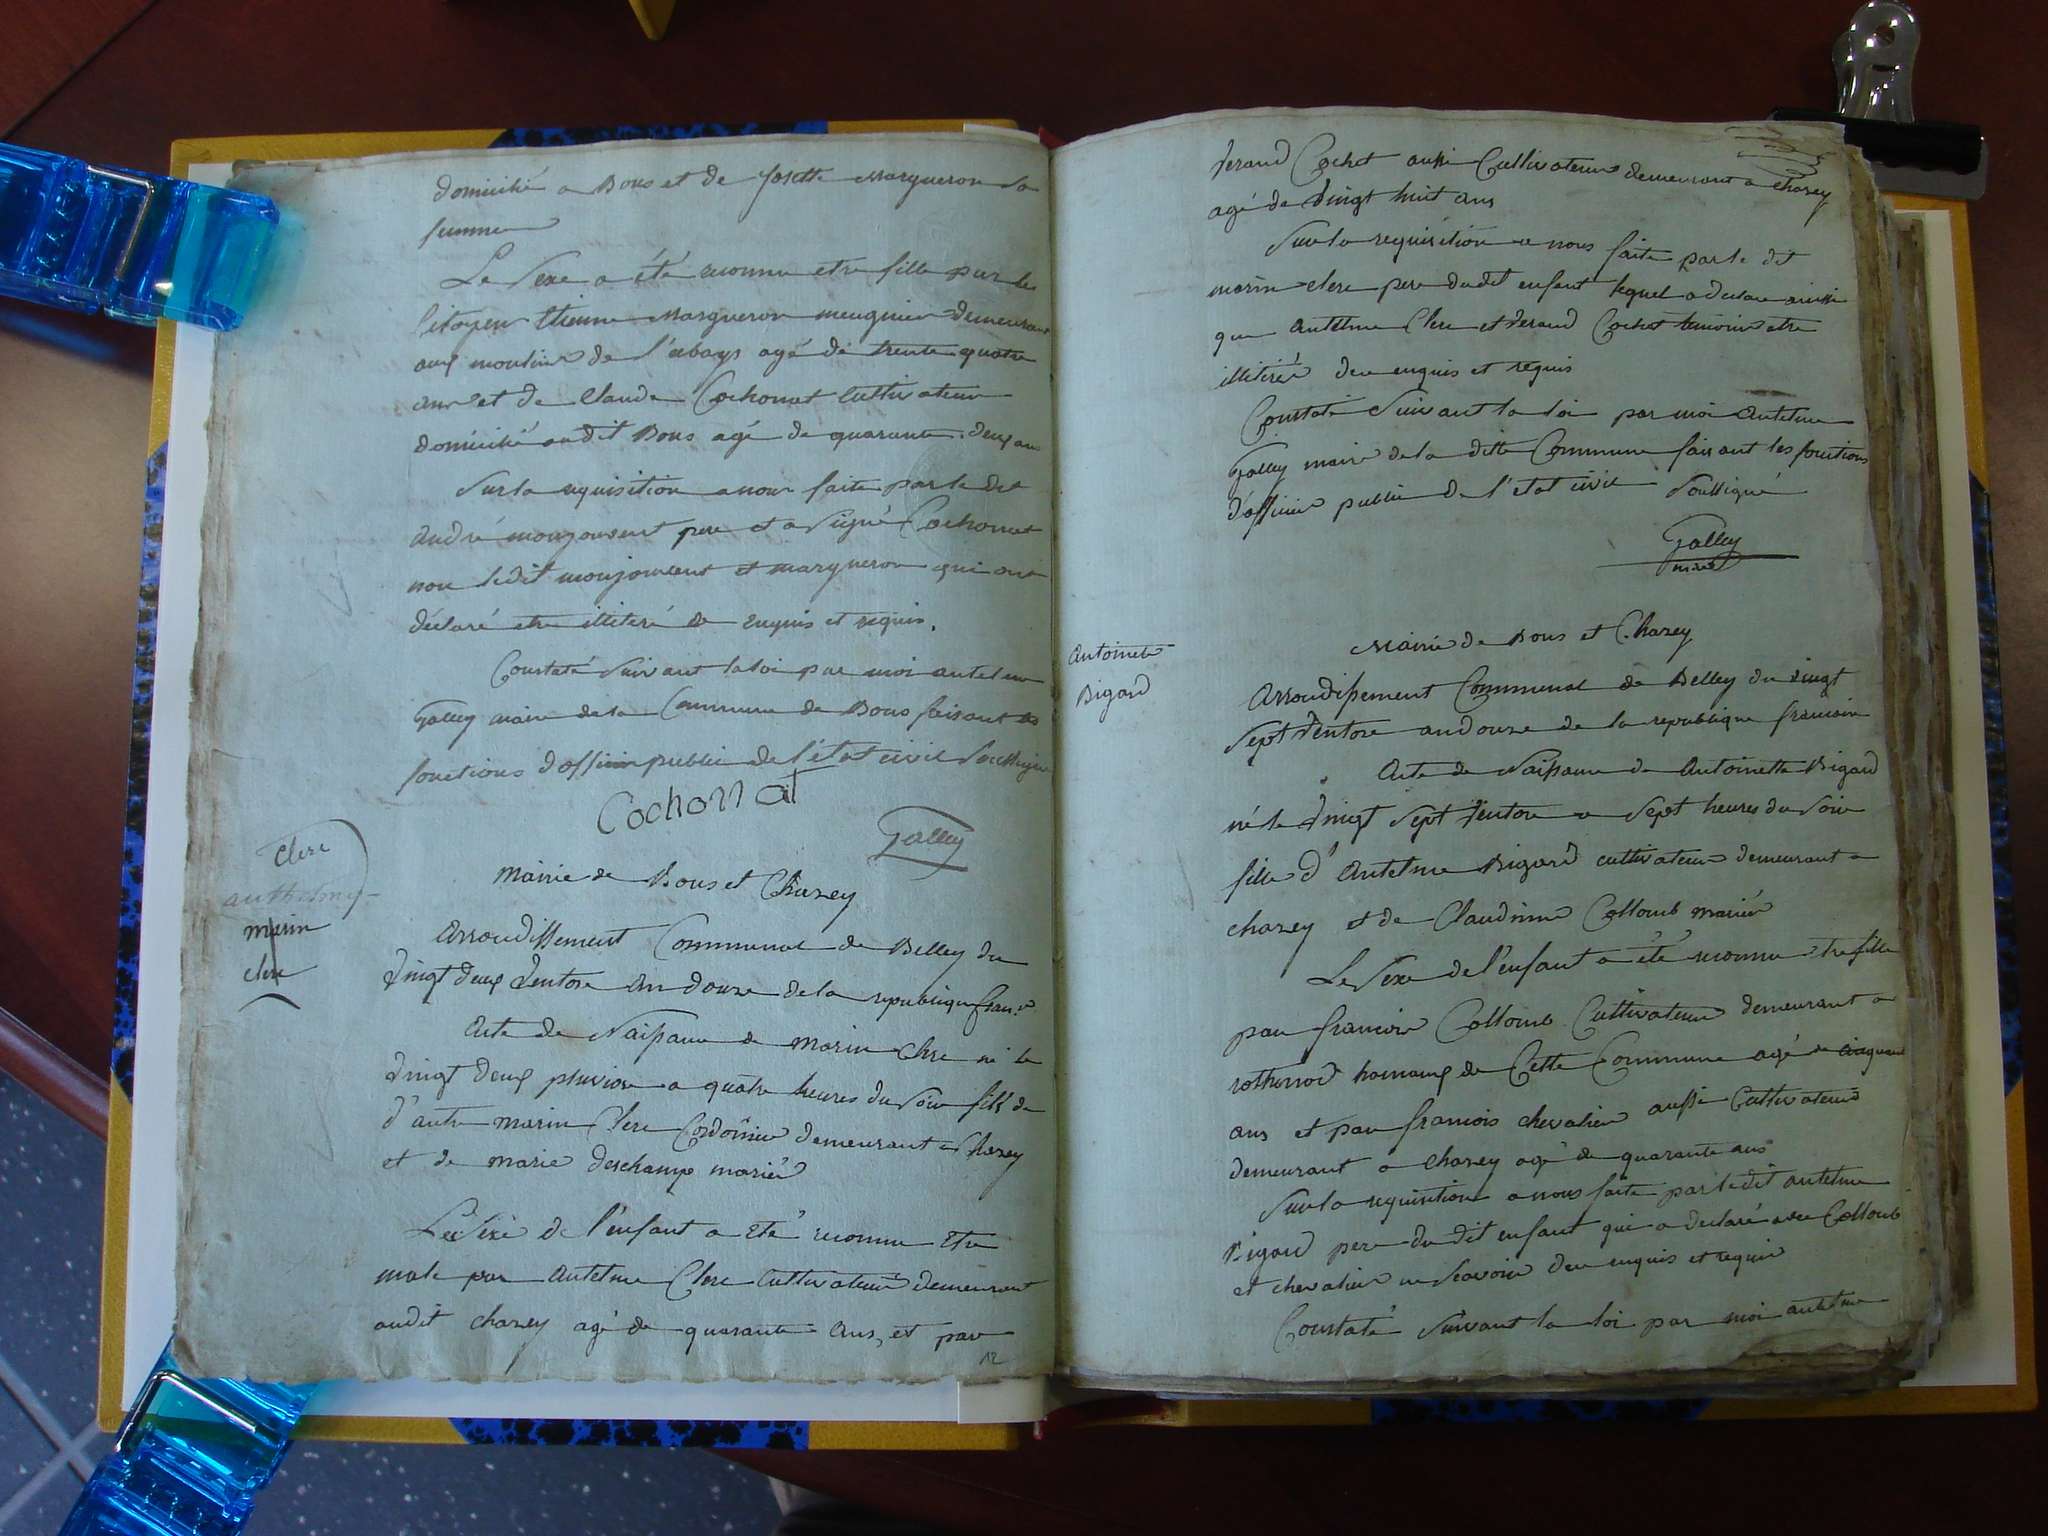 domicilié a Bons et de Josette Margueron sa
femme
Le Sexe a été reconnu etre fille par le
Citoyen Etienne Margueron meugnier demeurant
aux moulins de l'abays agé de trente quatre
ans et de Claude Cochonat Cultivateur
domicilié audit Bons agé de quarante deux ans
Sur la requisition a nous faite par le dit
andré monjouvent pere et a Signé Cochonat
non ledit monjouvent et margueron qui ont
déclaré etre illiteré de enquis et requis.
Constaté Suivant la loi par moi antelme
Galley maire de la Commune de Bons faisant les
fonctions d'officier public de l'état civil Soussigné
Cochonat
Galley
Clerc
anthelme
marin
clerc
Mairie de Bons et Chazey
Arrondissement Communal de Belley du
Vingt deux Ventose an douze de la republique franse
Acte de Naissance de marin Clerc né le
Vingt deux pluviose a quatre heures du Soir fils de
d'autre marin Clerc Cordonier demeurant a Chazey
et de marie deschamps mariés
Le Sexe de l'enfant a été reconnu etre
male par Antelme Clerc Cultivateur demeurant
audit chazey agé de quarante ans, et par
12
Verand Cochet aussi Cultivateur demeurant a Chazey
agé de Vingt huit ans
Sur la requisition a nous faite par le dit
marin clerc pere dudit enfant lequel a declaré ainsi
que Antelme Clerc et Verand Cochet temoins etre
illiterés deu enquis et requis
Constaté Suivant la loi par moi Antelme
Galley maire de la ditte Commune faisant les fonctions
d'officier public de l'etat civil Soussigné
Galley
maire
Antoinette
Bigard
Mairie de Bons et Chazey
Arrondissement Communal de Belley du vingt
Sept Ventose an douze de la republique francaise
Acte de Naissance de Antoinette Bigard
né le Vingt Sept Ventose a Sept heures du Soir
fille d'Antelme Bigard cultivateur demeurant a
chazey et de Claudine Collomb mariés
Le Sexe de l'enfant a été reconnu etre fille
par francois Collomb Cultivateur demeurant a
rothonod hameaux de Cette Commune agé de cinquante
ans et par francois chevalier aussi Cultivateur
demeurant a chazey agé de quarante ans
Sur la requisition a nous faite par ledit antelme
Bigard pere du dit enfant qui a declaré avec Collomb
et chevalier ne Scavoir deu enquis et requis
Constaté Suivant la loi par moi antelme